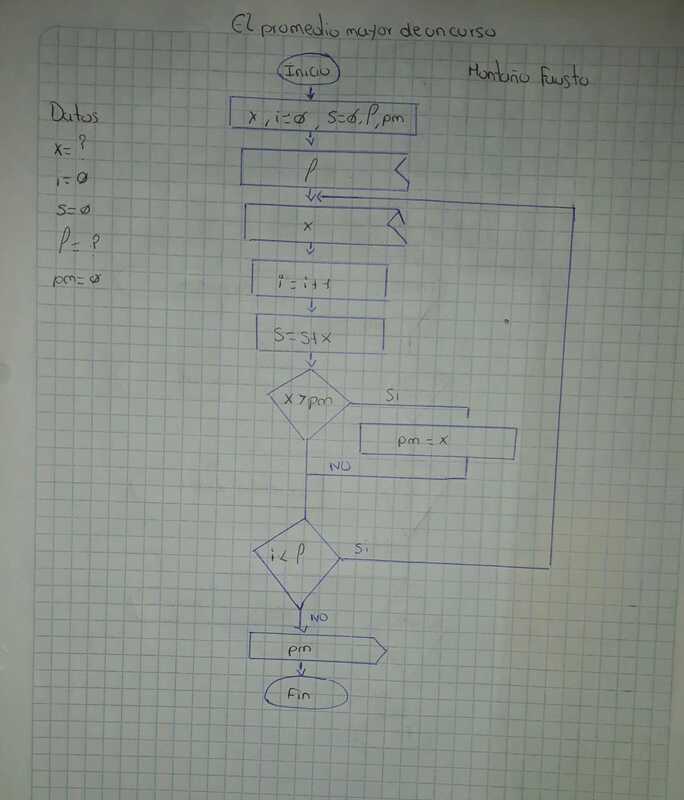 El promedio mayor de un curso
Montaño Fausto
Inicio
Datos
x = ?
i = 0
s = 0
P = ?
pm = 0
x, i=0, s=0, P, pm
P
x
i = i+1
s = s+x
x > pm
Si
pm = x
NO
i < P
Si
NO
pm
Fin